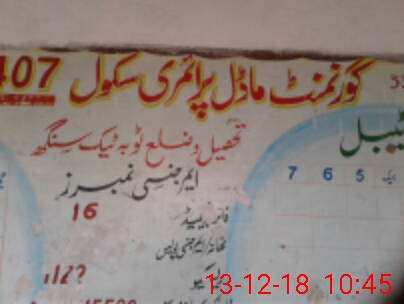 گورنمنٹ ماڈل پرائمری سکول 407
تحصیل و ضلع ٹوبہ ٹیک سنگھ
ٹیبل
ایمرجنسی نمبرز
7 6 5
فائر بریگیڈ 16
تھانہ ایمرجنسی پولیس
13-12-18 10:45